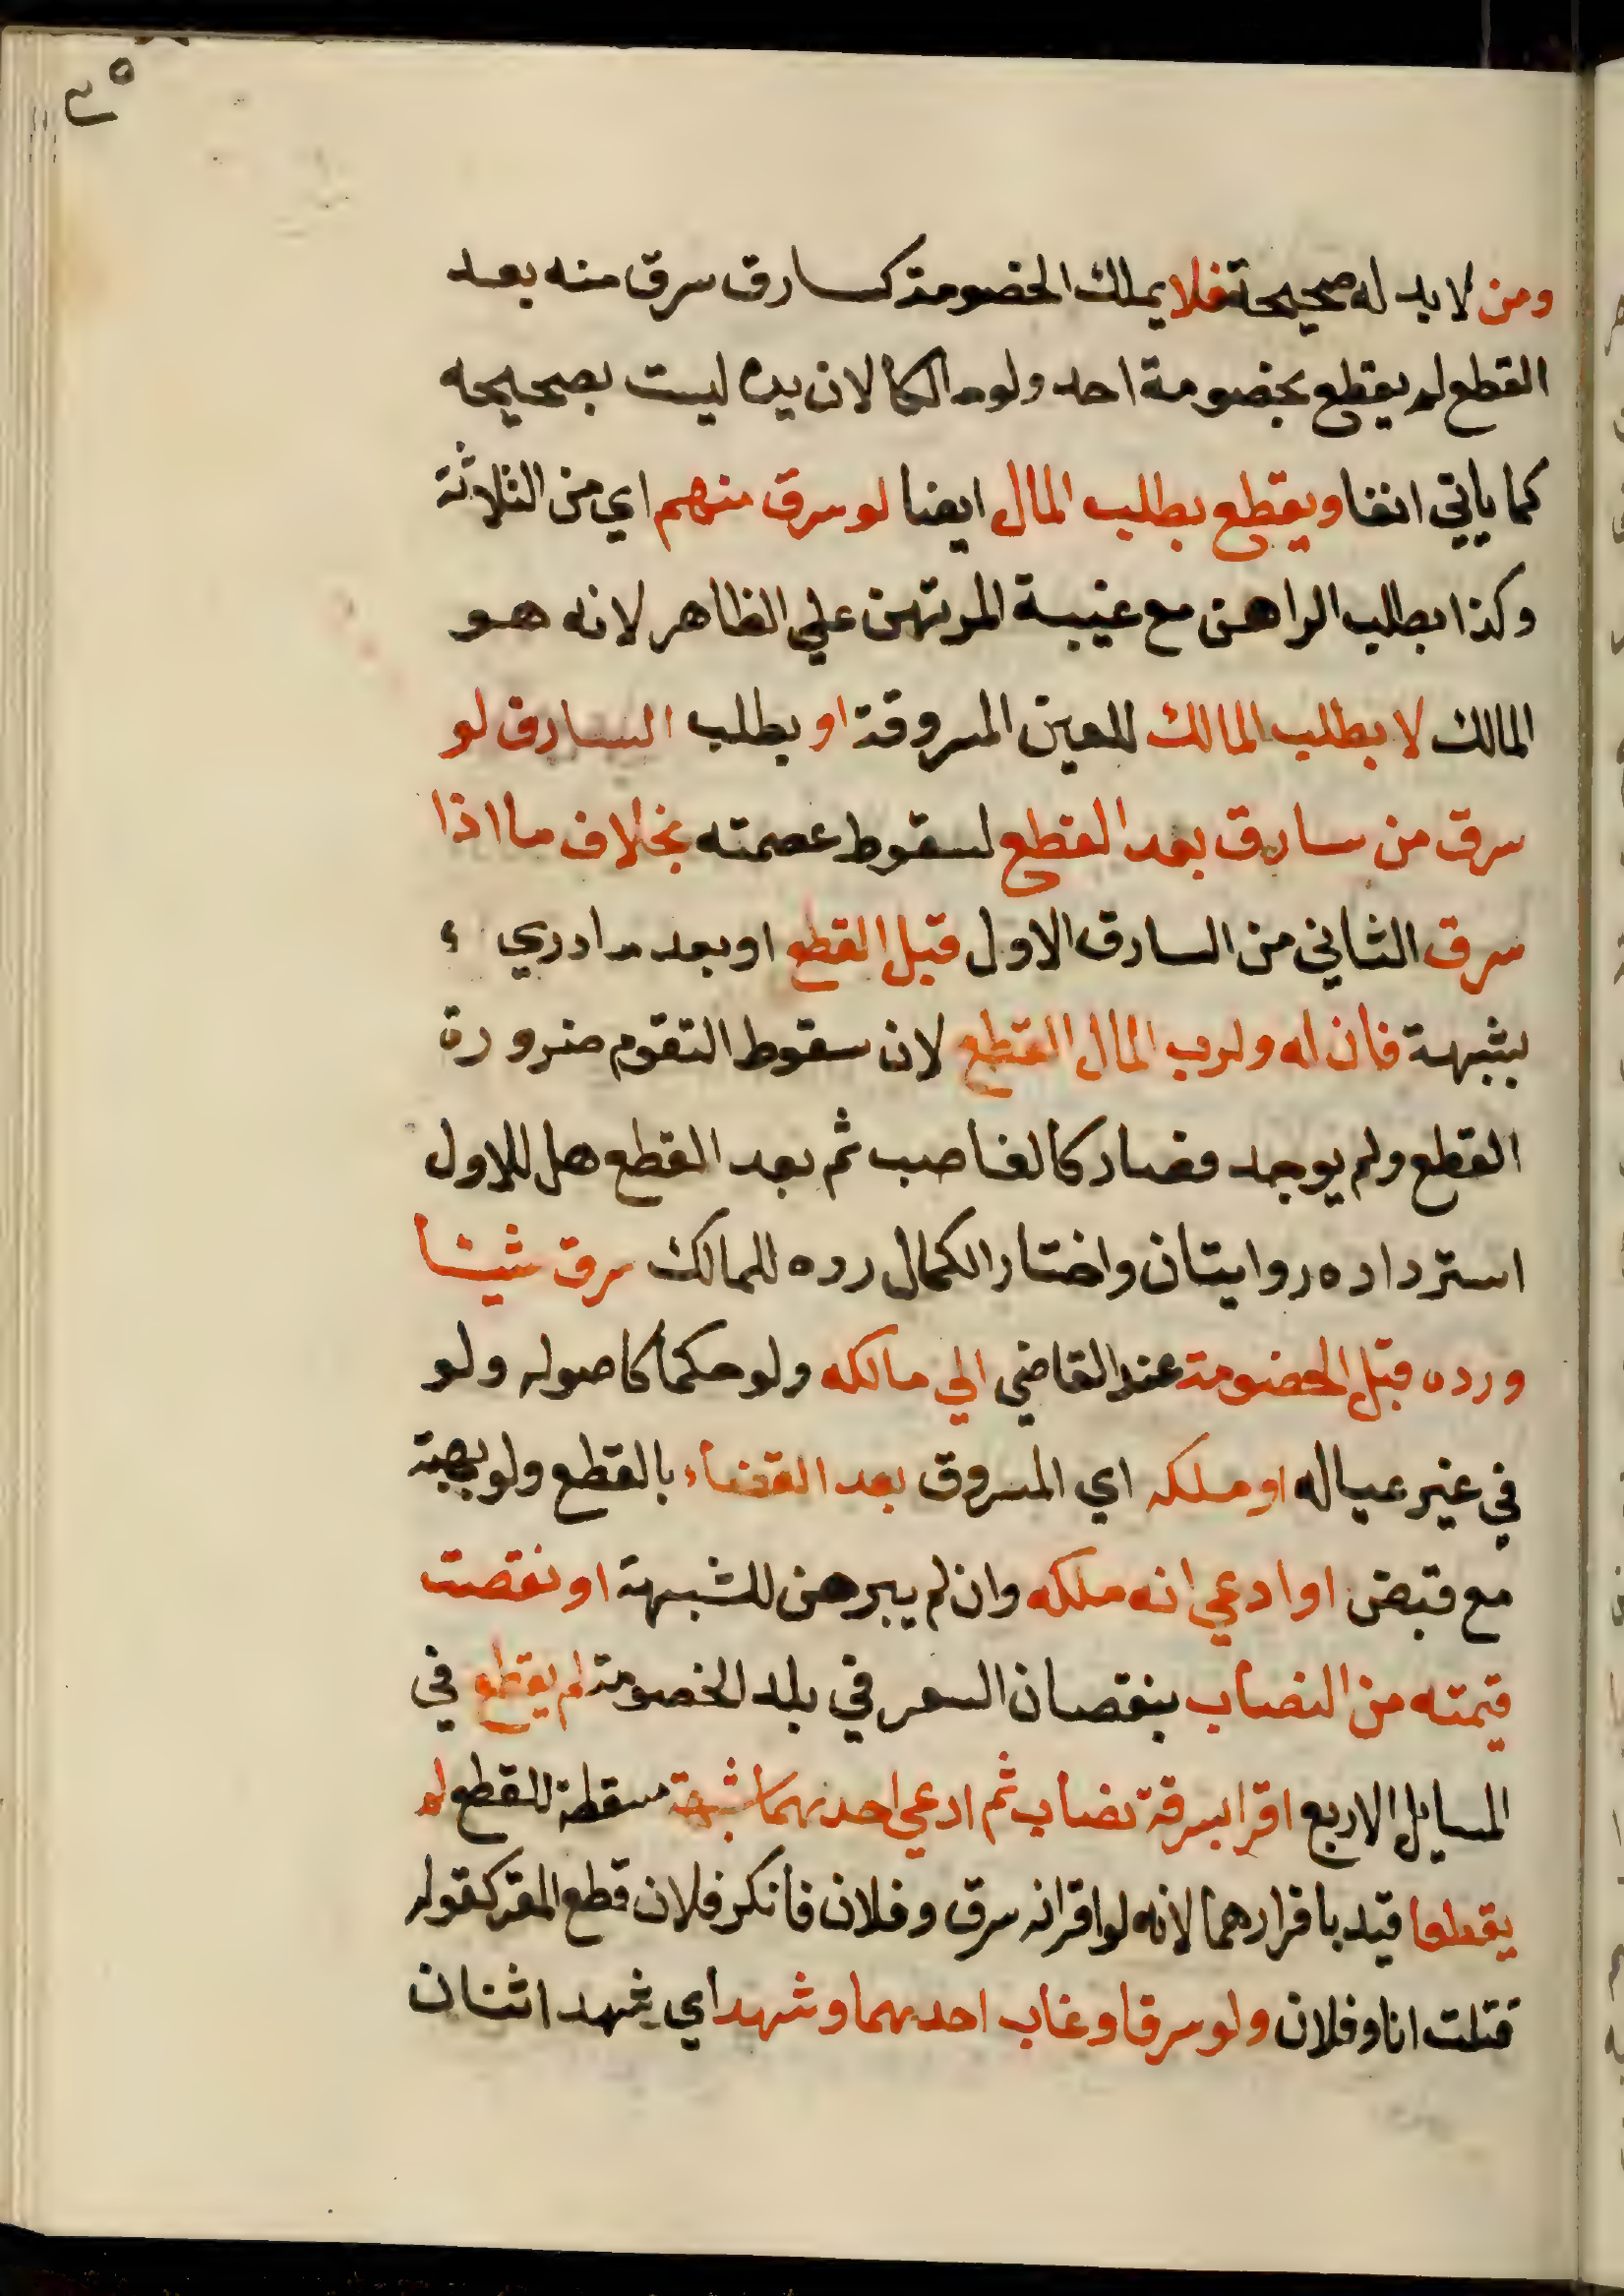 ٣٥
ومن لا يد له صحيحة فلا يملك الخصومة كسارق سرق منه بعد
القطع لم يقطع بخصومة احد ولو مالكا لان يده ليست بصحيحه
كما ياتي انفا ويقطع بطلب المال ايضا لو سرق منهم اي من الثلاثة
وكذا بطلب الراهن مع غيبة المرتهن علي الظاهر لانه هو
المالك لا بطلب المالك للعين المسروقة او بطلب السارق لو
سرق من سارق بعد القطع لسقوط عصمته بخلاف ما اذا
سرق الثاني من السارق الاول قبل القطع او بعد ما دري ء
بشبهة فان له ولرب المال القطع لان سقوط التقوم ضرورة
القطع ولم يوجد فصار كالغاصب ثم بعد القطع هل للاول
استرداده روايتان واختار الكمال رده للمالك سرق شيئا
ورده قبل الخصومة عند القاضي الي مالكه ولو حكما كاصوله ولو
في غير عياله او ملكه اي المسروق بعد القضاء بالقطع ولو بهبة
مع قبض او ادعي انه ملكه وان لم يبرهن للشبهة او نقصت
قيمته من النصاب بنقصان السعر في بلد الخصومة لم يقطع في
المسايل الاربع اقرا بسرقة نصاب ثم ادعي احدهما شبهة مسقطة للقطع لم
يقطعا قيد باقرارهما لانه لو اقر انه سرق وفلان فانكر فلان قطع المقر كقوله
قتلت انا وفلان ولو سرقا وغاب احدهما وشهد اي شهد اثنان